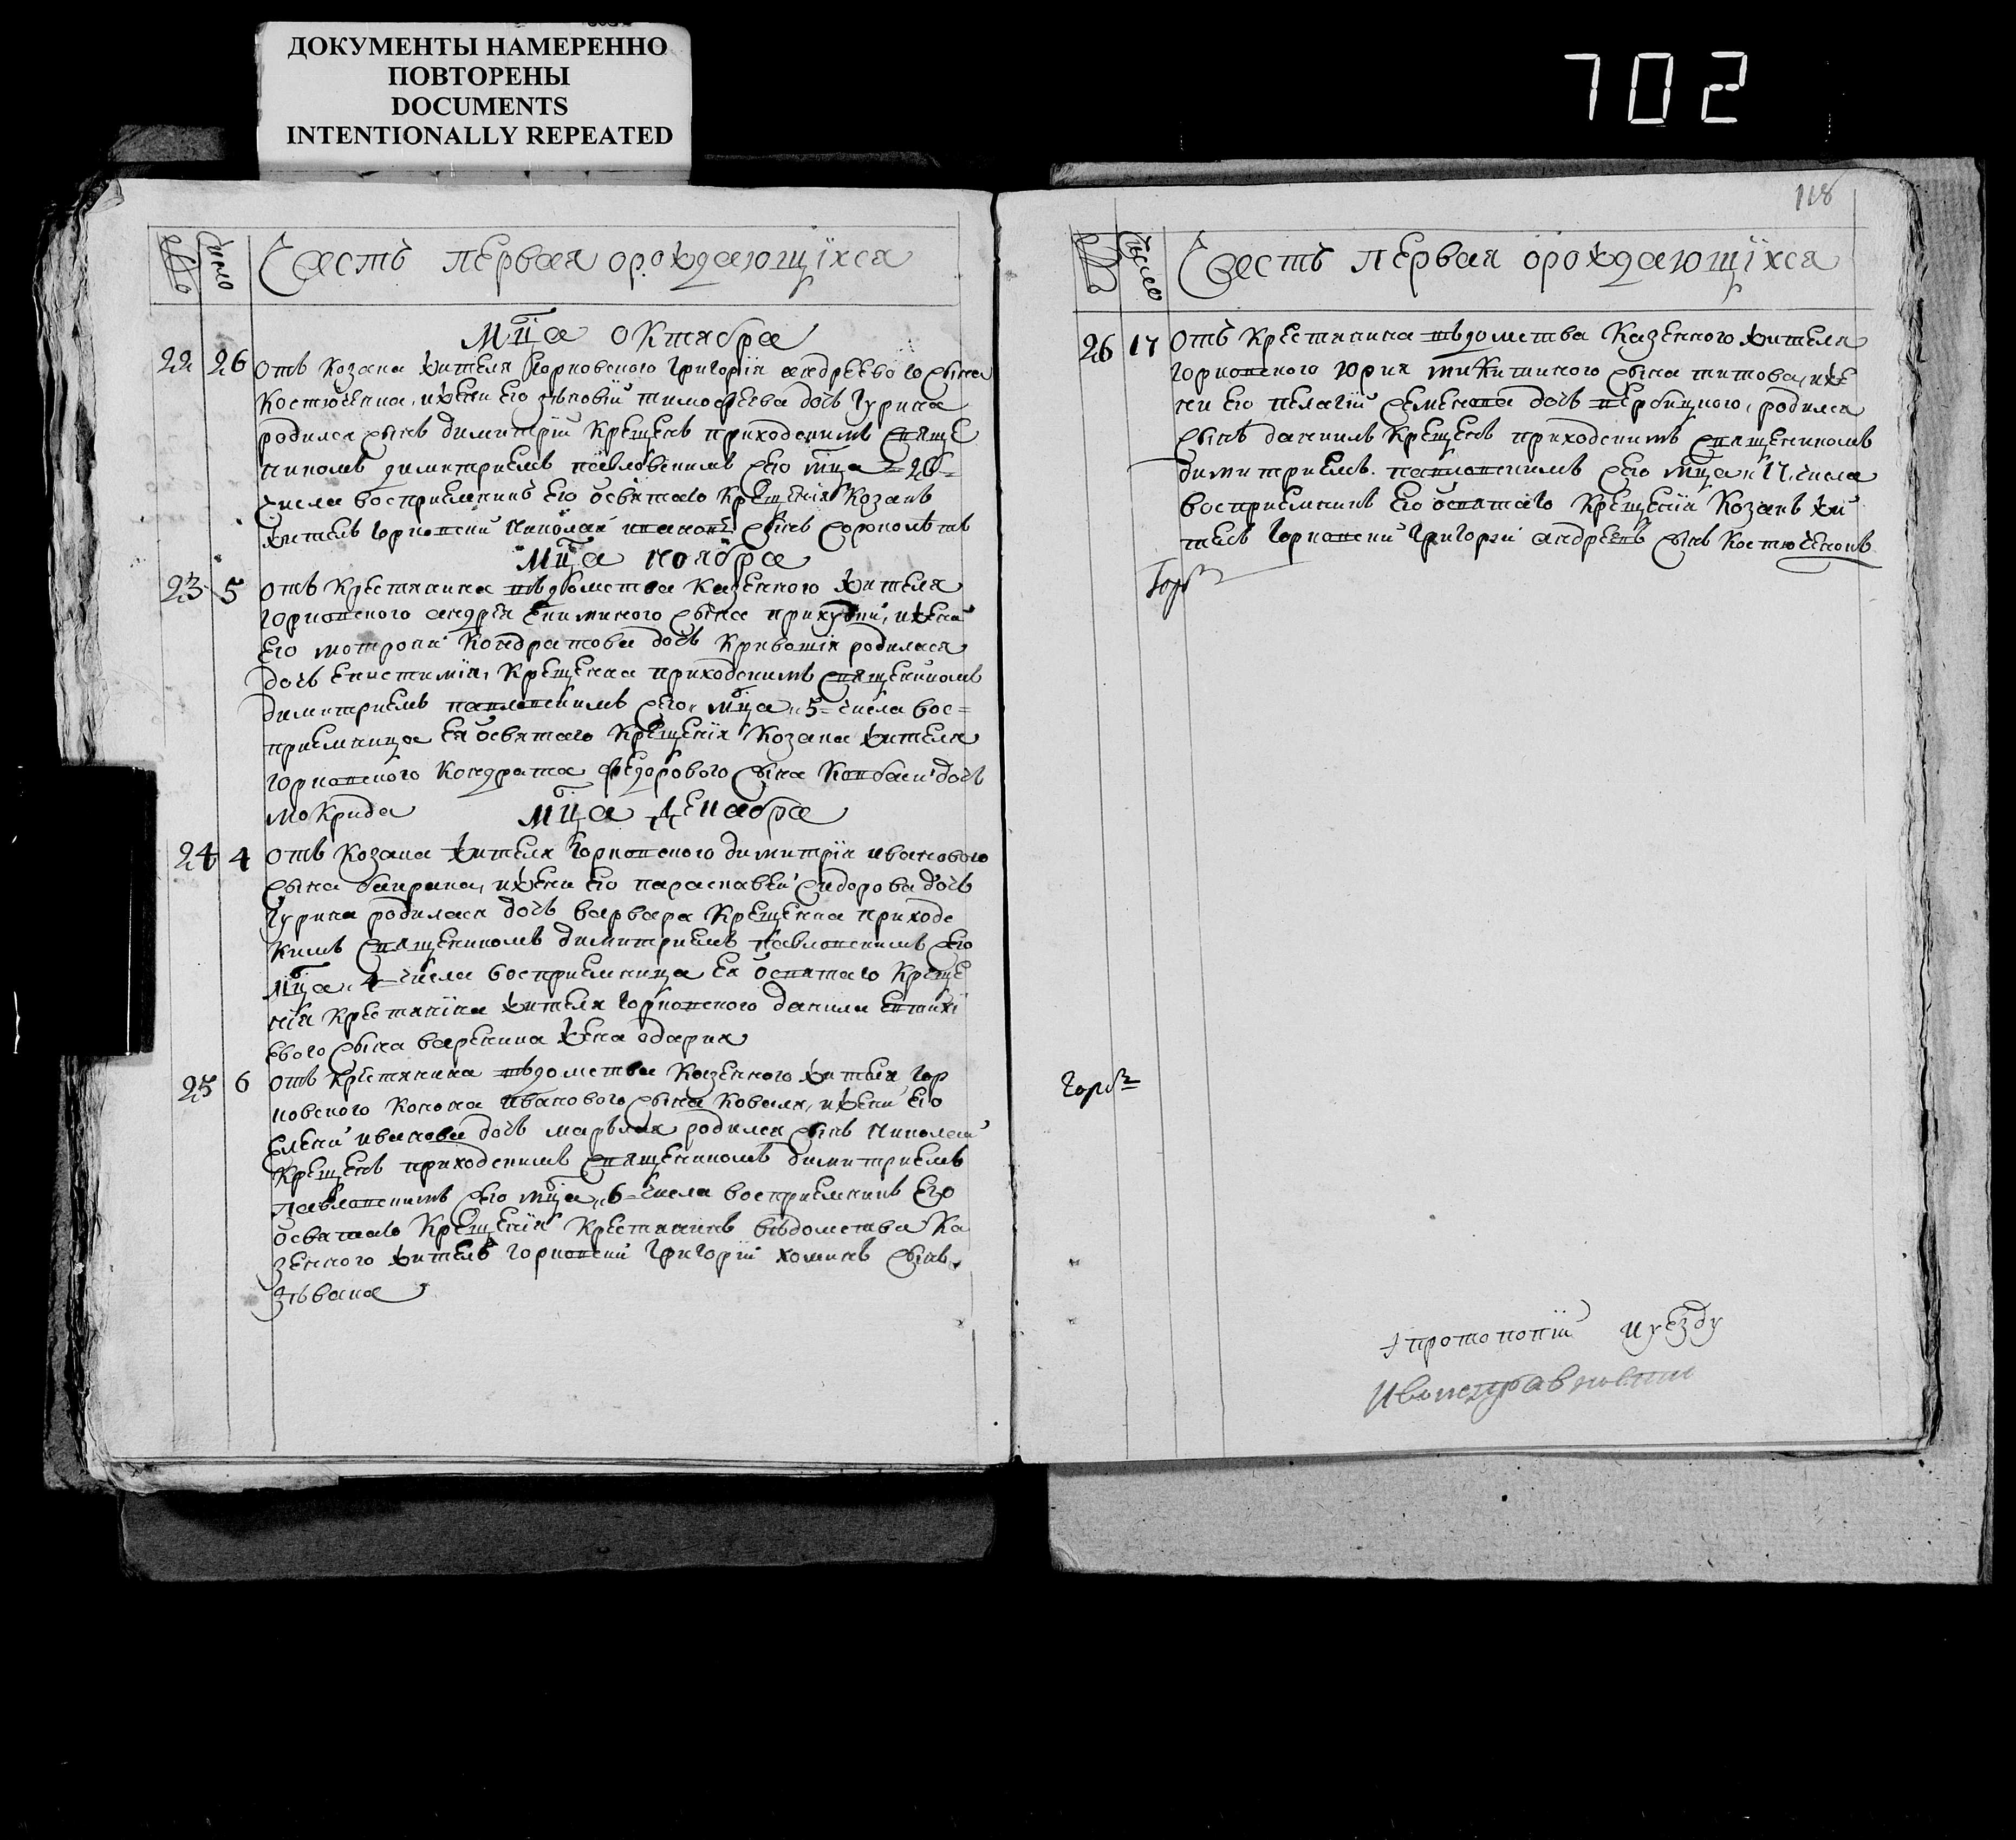 ДОКУМЕНТЫ НАМЕРЕННО
ПОВТОРЕНЫ
DOCUMENTS
INTENTIONALLY REPEATED
702
118
Число
Часть первая орождающїхся
Мца октября
22 26 отъ козака жителя Горковского Григорія андреевого сына
Костюченка, ижени его зѣновїи тимофеева дочь Гурина
родился сынъ димитрїй крещенъ приходскимъ свяще
никомъ димитриемъ павловскимъ сего мца 26
числа восприемникъ его освятаго крещенїя козакъ
житель Горковский николай сынъ
Мца ноября
23 5 отъ крестянина вѣдомства казенного жителя
горковского андрѣя сына ижени
его мотрони кондратова дочь родилася
дочь епистимїя, крещенна приходскимъ священикомъ
димитриемъ павловскимъ сего мца 5 числа вос=
приемница ея освятаго крещенїя козака жителя
горковского кондрата федорового сына дочь
мокрида
Мца декабря
24 4 отъ козака жителя Горковского димитрїя иванового
сына ижени его параскавеи сидорова дочь
Гурина родилася дочь варвара крещенна приходс
кимъ священикомъ димитриемъ павловскимъ сего
мца 4 числа восприемница ея освятаго креще
нїя крестянїна жителя Горковского данила евтихї
евого сына жена одария
25 6 отъ крестянина вѣдомства казенного жителя Гор
ковского конона иванового сына коваля, ижени его
елени иванова дочь родился сынъ николай
крещенъ приходскимъ священикомъ димитриемъ
павловскимъ сего мца 6 числа восприемникъ его
освятаго крещенїя крестянинъ вѣдомства ка
зенного житель горковский Григорїй хоминъ сынъ
Число
Часть первая орождающїхся
26 17 отъ крестянина вѣдомства казенного жителя
горковского юрия микитиного сына титова, иже
ни его пелагїи семенова дочь родился
сынъ даниилъ крещенъ приходскимъ священикомъ
димитриемъ павловскимъ сего мца 17 числа
восприемникъ его освятаго крещенїя козакъ жи
тель Горковский Григорїй андреевъ сынъ костюченокъ
протопопїи и уезду